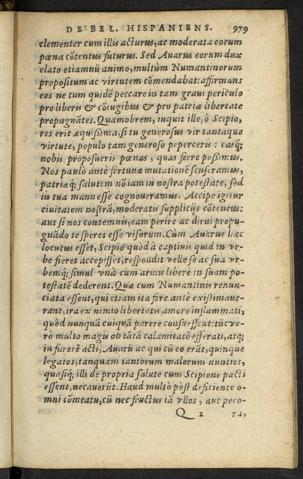 DE BEL. HISPANIENS. 979
clementer cum illis acturus, ac moderata eorum
pœna cõtentus futurus. Sed Auarus eorum dux
elato etiamnũ animo, multùm Numantinorum
propositum ac virtutem cõmendabat: affirmans
eos ne tum quidẽ peccare in tam graui periculo
pro liberis & cõiugibus & pro patriæ libertate
propugnãtes. Quamobrem, inquit ille, ò Scipio,
res erit æquissima, si tu generosus vir tantaque
virtute, populo tam generoso peperceris: easq́;
nobis proposueris pœnas, quas ferre possimus.
Nos paulò antè fortunæ mutationẽ senseramus,
patriæq́; salutem nõ iam in nostra potestate, sed
in tua manu esse cognoueramus. Accipe igitur
ciuitatem nostrã, moderatis supplicijs cõtentus:
aut si nos contemnis, eam perire ac dirui propu-
gnãdo te speres esse visurum. Cùm Auarus hæc
locutus esset, Scipio quòd à captiuis quid in vr-
be fieret accepisset, respondit velle se ac suã vr-
bemq́; simul vnà cum armis libere in suam po-
testatẽ dederent. Quæ cum Numantinis renun-
ciata essent, qui etiam ita feræ antè existimaue-
rant, ira ex nimio libertatis amore inflammati,
quòd nunquã cuiquã parere consueissent: tũc ve-
rò multo magis ob tãtã calamitatẽ efferati, atq́;
in furorẽ acti, Auarũ ac qui cũ eo erãt, quinque
legatos, tanquam tantorum malorum nuntios,
quasiq́; illi de propria salute cum Scipione pacti
essent, necauerũt. Haud multò pòst deficiente o-
mni cõmeatu, cũ nec fructus iã vllos, aut peco-
Q 2 ra,